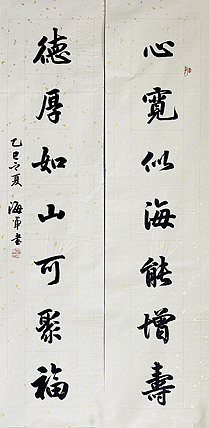 心寬似海能增壽
德厚如山可聚福
乙巳之夏
海軍書